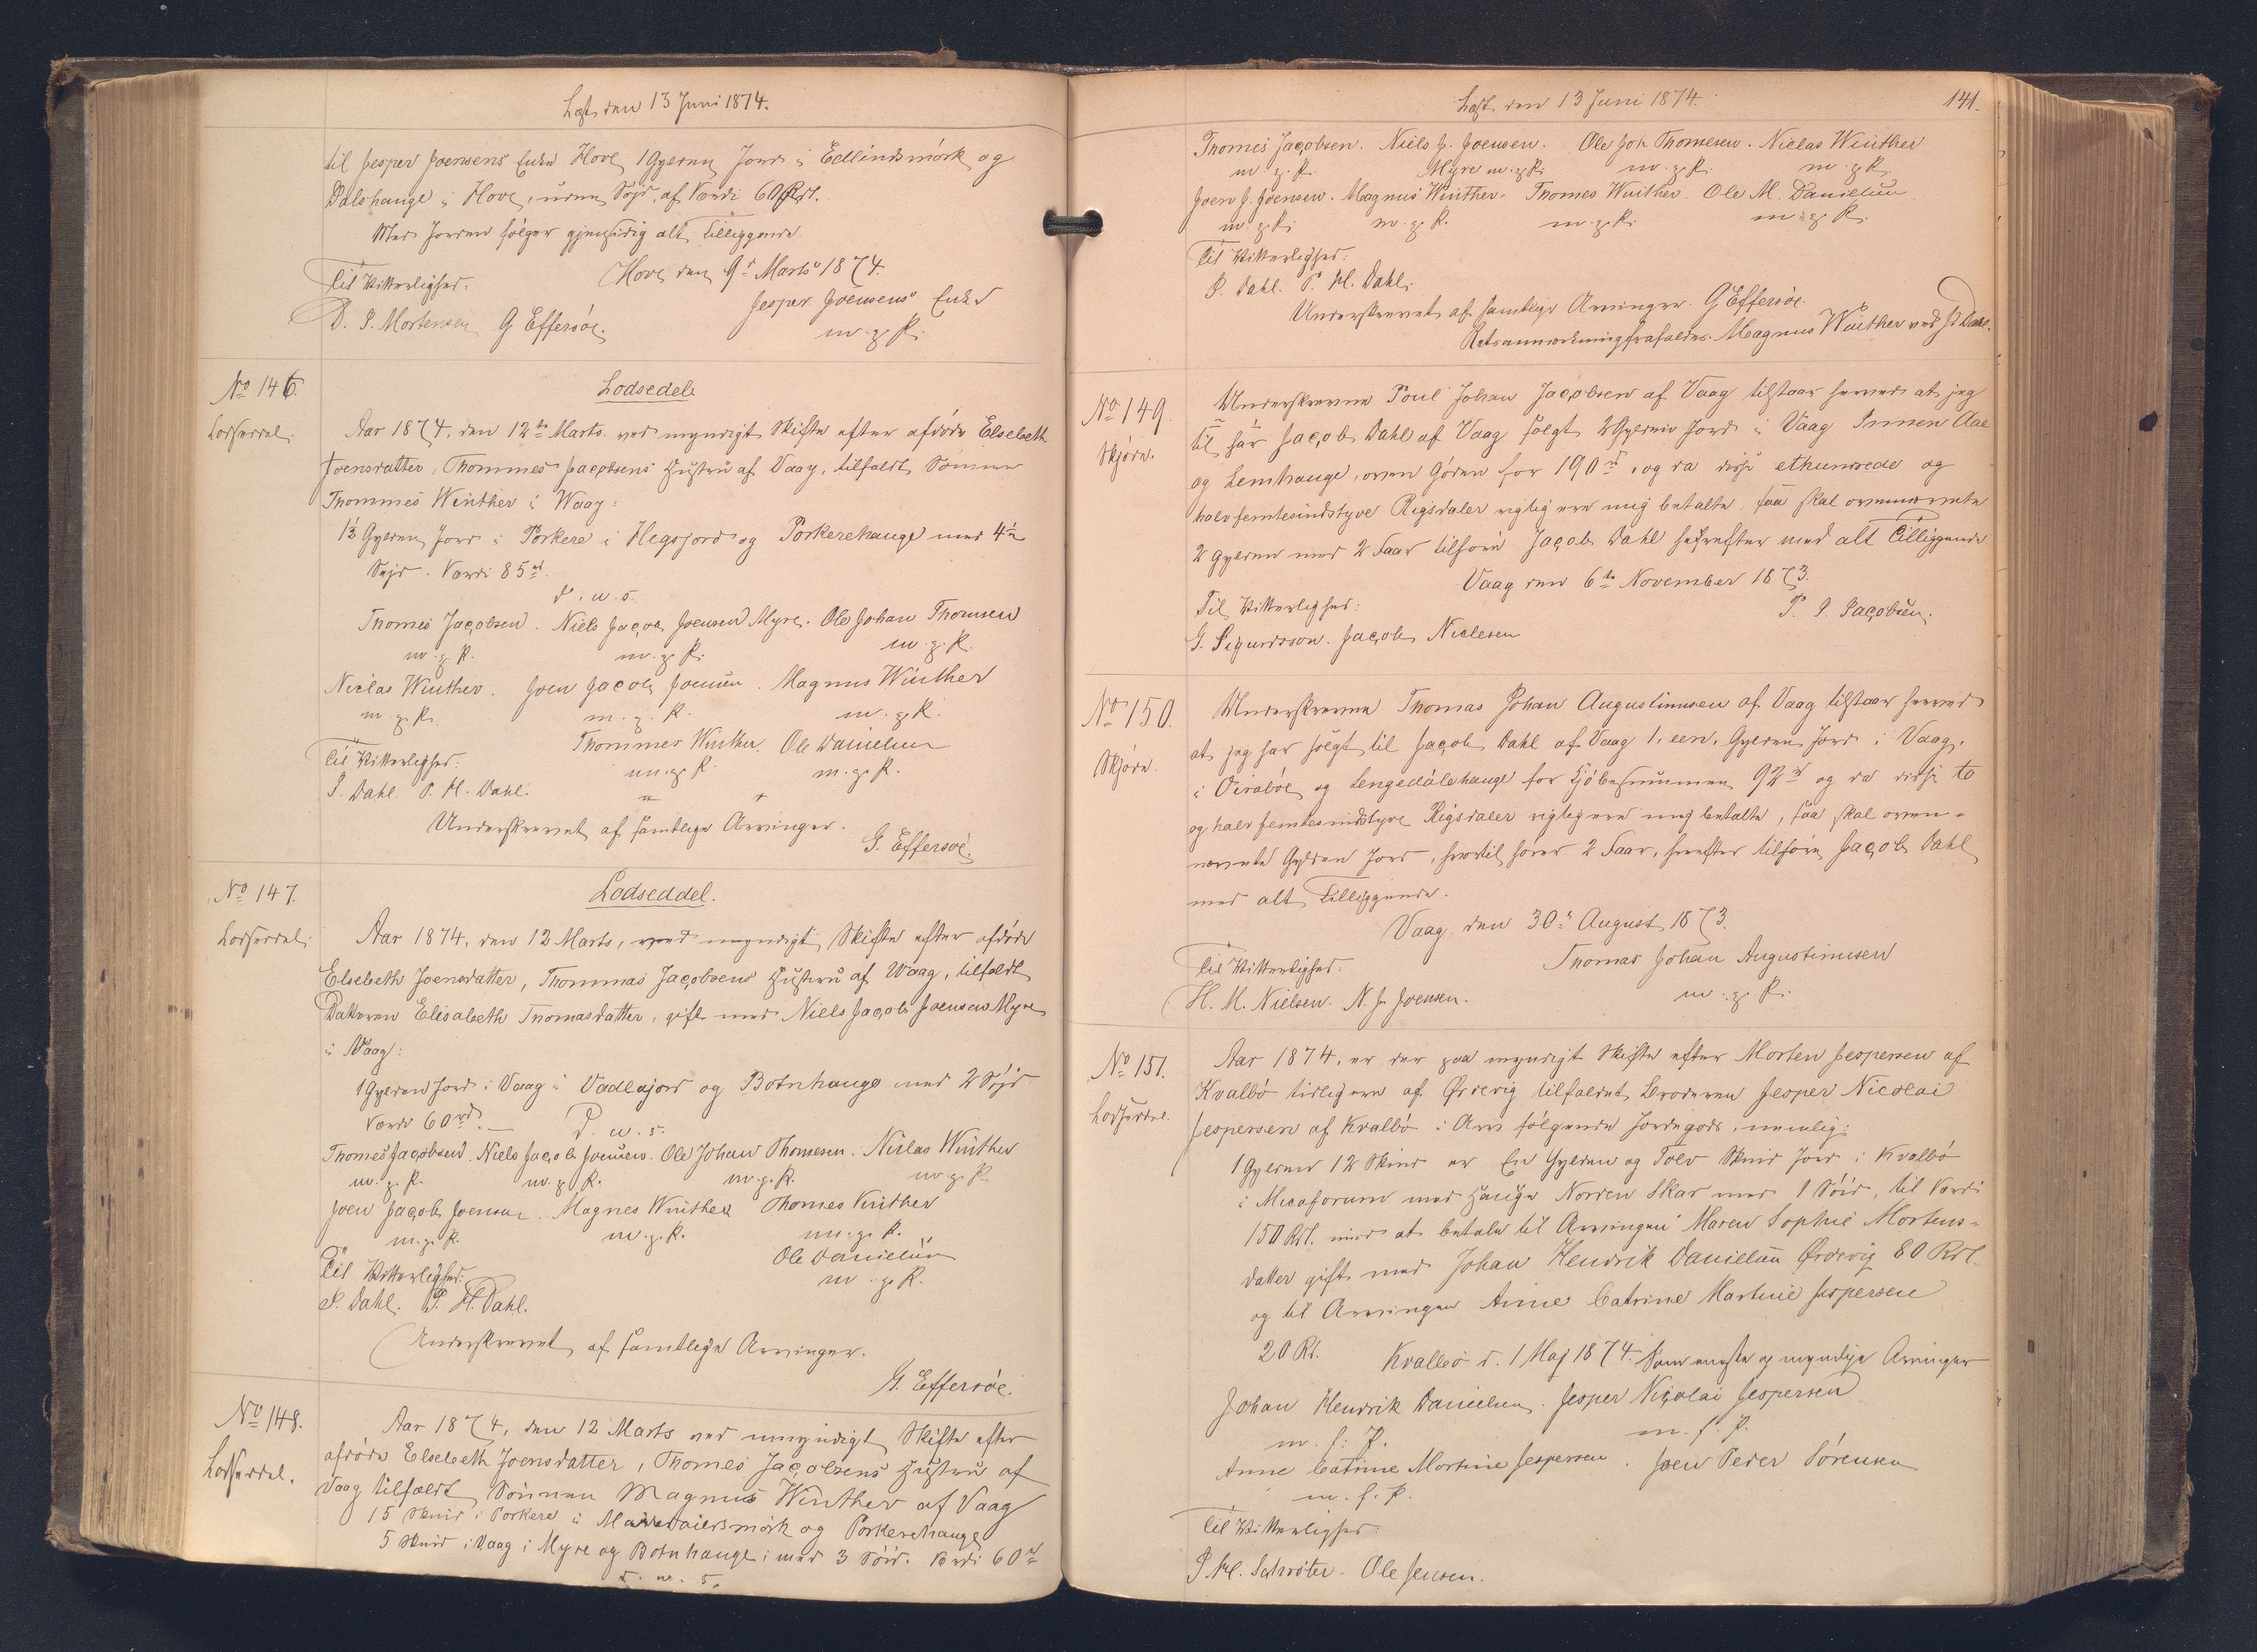 Læst den 13 Juni 1874.
til Jesper Joensens Enke Hove, 1 Gylden Jord i Edlindsmörk og
Dalshauge i Hove, uden Söjd, af Værdi 60 Rdl.
Med Jorden fölger gjensidig alt Tilliggende.
Hove den 9d Marts 1874.
Til Vitterlighed:
Jesper Joensens Enke
D. P. Mortensen G Effersöe.
m. g. P.
No 146.
Lodseddel.
Lodsedel.
Aar 1874, den 12te Marts ved myndigt Skifte efter afdöde Elsebeth
Joensdatter, Thommes Jacobsens Hustru af Vaag, tilfaldt Sönnen
Thommes Winther i Waag:
1½ Gylden Jord i Porkere i Hegsjord og Porkerehauge med 4½
Söjd. Værdi 85 rd.
D. u. s.
Thomes Jacobsen. Niels Jacob Joensen Myre. Ole Johan Thomsen
m. g. P. m. g. P. m. g. P.
Niclas Winther. Joen Jacob Joensen. Magnus Winther
m. g. P. m. g. P. m. g. P.
Til Vitterlighed: Thommes Winther. Ole Danielsen
m. g. P. m. g. P.
P. Dahl. P. H. Dahl.
Underskrevet af samtlige Arvinger.
G. Effersöe.
No 147.
Lodseddel.
Lodseddel.
Aar 1874, den 12 Marts, ved myndigt Skifte efter afdöde
Elsebeth Joensdatter, Thommas Jacobsens Hustru af Waag, tilfaldt
Datteren Elisabeth Thomasdatter, gift med Niels Jacob Joensen Myre
i Waag:
1 Gylden Jord i Vaag i Vadlajord og Botnhauge med 2 Söjd
Værdi 60 rd. D. u. s.
Thomes Jacobsen. Niels Jacob Joensen. Ole Johan Thomesen. Niclas Winther
m. g. P. m. g. P. m. g. P. m. g. P.
Joen Jacob Joensen. Magnes Winther Thomes Vinther
m. g. P. m. g. P. m. g. P.
Til Vitterlighed: Ole Danielsen
m. g. P.
P. Dahl. P. H. Dahl.
Underskrevet af samtlige Arvinger.
G. Effersöe.
No 148.
Lodseddel.
Aar 1874, den 12 Marts ved myndigt Skifte efter
afdöde Elsebeth Joensdatter, Thomes Jacobsens Hustru af
Vaag tilfaldt Sönnen Magnus Winther af Vaag
15 Skind i Porkere i og Porkerehauge
5 Skind i Vaag i Myre og Botnhauge i med 3 Söid. Værdi 60 rd
D. u. s.
Læst den 13 Juni 1874.
141.
Thomes Jacobsen. Niels J. Joensen. Ole Joh Thomesen. Niclas Winther
m. g. P. Myre m. g. P. m. g. P. m. g. P.
Joen J. Joensen. Magnus Winther. Thomes Winther. Ole M. Danielsen
m. g. P. m. g. P. m. g. P. m. g. P.
Til Vitterlighed:
P. Dahl. P. H. Dahl.
Underskrevet af samtlige Arvinger. G Effersöe.
Retsanmærkning frafaldes. Magnus Winther ved P. Dahl.
No 149.
Skjöde.
Underskrevne Poul Johan Jacobsen af Vaag tilstaar herved at jeg
til har Jacob Dahl af Vaag solgt 2 Gylden Jord i Vaag Innen Aae
og Lemhauge, oven Göden for 190 rd, og da disse ethundrede og
halvfemtesindstyve Rigsdaler rigtig ere mig betalte, saa skal ovennævnte
2 Gylden med 2 Faar tilhöre Jacob Dahl herefter med alt Tilliggende.
Vaag den 6te November 1873.
Til Vitterlighed: P. J. Jacobsen.
G. Sigurdsson. Jacob Niclesen
No 150.
Skjöde.
Underskrevne Thomas Johan Augustinusen af Vaag tilstaar herved
at jeg har solgt til Jacob Dahl af Vaag 1, een, Gylden Jord i Vaag,
i Oiraböe og Lengedalshauge for Kjöbesummen 92 rd og da disse to
og halvfemtesindstyve Rigsdaler rigtig ere mig betalte, saa skal oven-
nævnte Gylden Jord, hvortil hörer 2 Faar, herefter tilhöre Jacob Dahl
med alt Tilliggende.
Vaag, den 30d August 1873.
Til Vitterlighed: Thomas Johan Augustinusen
H. M. Nielsen. N. J. Joensen. m. g. P.
No 151.
Lodseddel.
Aar 1874, er der paa myndigt Skifte efter Morten Jespersen af
Kvalbö tidligere af Ördevig tilfaldet Broderen Jesper Nicolai
Jespersen af Kvalbö i Arv fölgende Jordegods, nemlig:
1 Gylden 12 Skind er En Gylden og Tolv Skind Jord i Kvalbö
i med Hauge Norden Skar med 1 Söid, til Værdi
150 Rdl. mod at betale til Arvingen Maren Sophie Mortens-
datter gift med Johan Hendrik Danielsen Ördevig 80 Rdl.
og til Arvingen Anne Catrine Martine Jespersen
20 Rd. Kvalbö d. 1 Maj 1874. Som eneste og myndige Arvinger
Johan Hendrik Danielsen. Jesper Nicolai Jespersen
m. f. P. m. f. P.
Anne Catrine Martine Jespersen. Joen Peder Sörensen
m. f. P.
Til Vitterlighed:
Schröter. Ole Jensen.